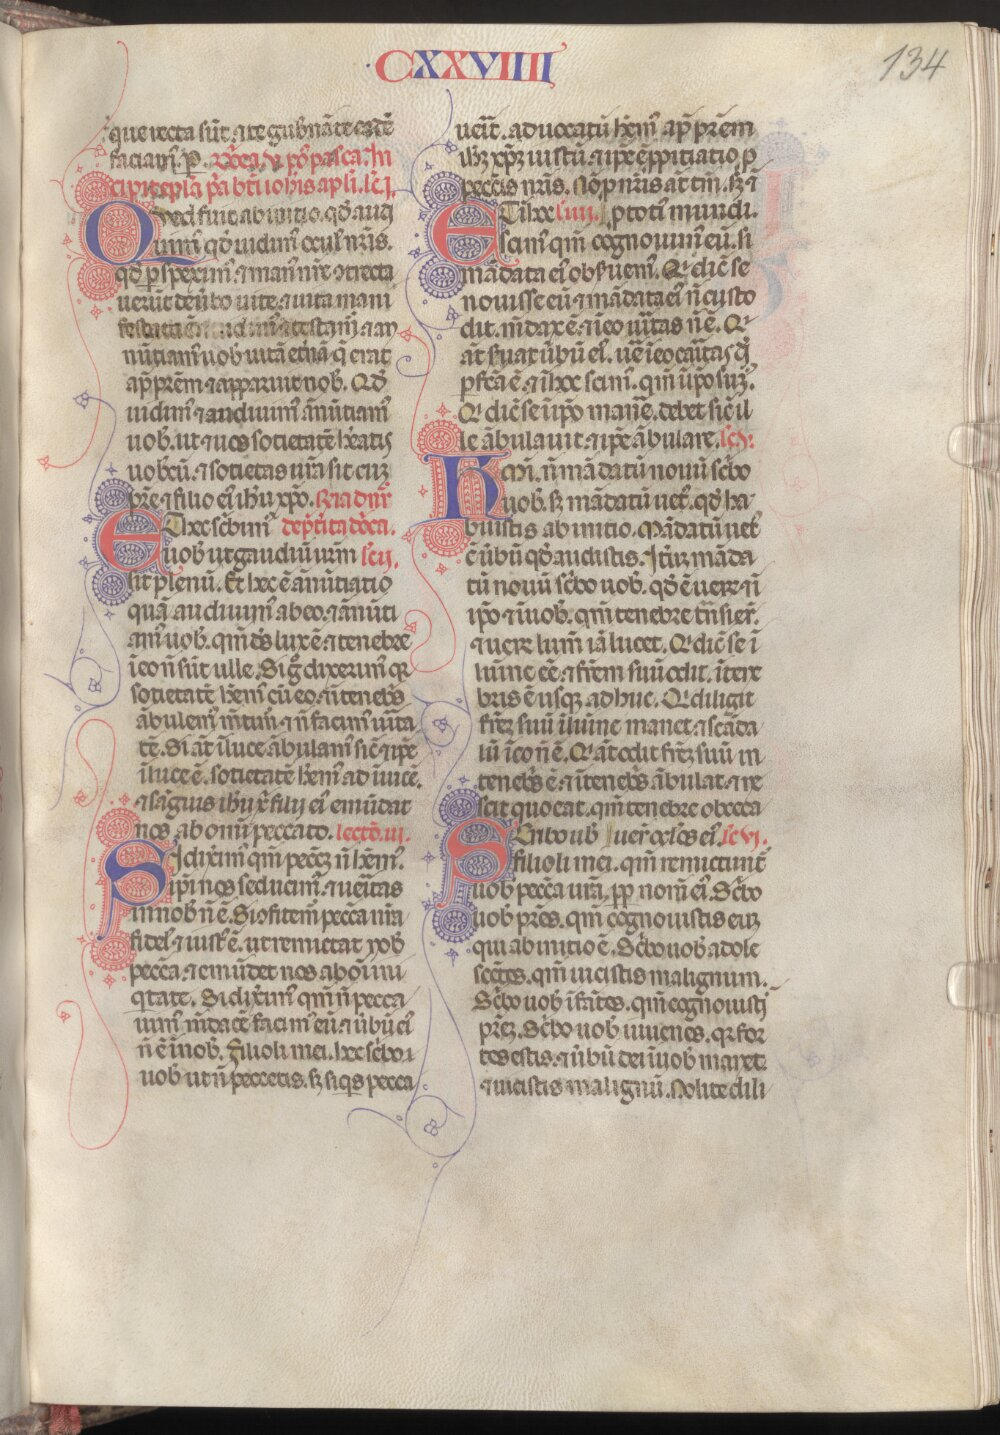 ·CXXVIIII
134
que recta sūt. ⁊ te gub̄nāte eadē
faciam᷒. P. D̄nica v. po᷒ pasca. In
cipit ep̄la p̄a bt̄i ioh̄is apl̄i. lc̄. I.
Quod fuit ab initio. qd̄ audi
uim᷒. qd̄ uidim᷒ ocul᷒ nr̄is.
qd̄ ꝑspexim᷒. ⁊ man᷒ nr̄e ɔtrecta
uerūt de ūbo uite. ⁊ uita mani
festata ē. ⁊ uidim᷒ ⁊ testam᷒. ⁊ an
nūtiam᷒ uob̄ uitā et̄nā q̄ erat
ap̄ prēm ⁊ apparuit nob̄. Qd̄
uidim᷒ ⁊ audiuim᷒ ānūtiam᷒
uob̄. ut ⁊ uos societatē hēatis
nobcū. ⁊ societas nr̄a sit cuꝫ
pr̄e ⁊ filio ei᷒ ih̄u xp̄o.
ET hec sc̄bim᷒
uob̄ ut gaudiū ur̄m lc̄. ij.
sit plenū. Et hec ē ānūtiatio
quā audiuim᷒ ab eo. ⁊ ānūti
am᷒ uob̄. qm̄ d̄s lux ē. ⁊ tenebre
ī eo ñ sūt ulle. Si g̊ dixerim᷒ qꝛ
societatē hēm᷒ cū eo. ⁊ ī teneb̄s
ābulem᷒. m̄tim᷒ ⁊ ñ facim᷒ ūita
tē. Si āt ī luce ābulam᷒ sic̄ ⁊ ip̄e
ī luce ē. societatē hēm᷒ ad īuicē.
⁊ sāguis ih̄u x̄ filij ei᷒ emūdat
nos ab omī peccato. lectō. iii.
SI dixim᷒ qm̄ pecc̄m ñ hēm᷒.
ip̄i nos seducim᷒. ⁊ ueritas
in nob̄ ñ ē. Si ɔfitem᷒ pecca nr̄a
fidel̄ ⁊ iust᷒ ē. ut remittat nob̄
pecca. ⁊ emūdet nos ab oī ini
qtate. Si dixim᷒ qm̄ ñ pecca
uim᷒. m̄dacē facim᷒ eū. ⁊ ūbū ei᷒
ñ ē ī nob̄. Filioli mei. hec sc̄bo
uob̄ ut ñ peccetis. sꝫ ⁊ si qs pecca
uerit. aduocatū hēm᷒ ap̄ prēm
ih̄m xp̄m iustū. ⁊ ip̄e ē ꝓpitiatio ꝓ
peccis nr̄is. Nō ꝓ nr̄is āt tm̄. sꝫ ⁊
ET ī hoc lc̄. iiii. ꝓ toti᷒ mundi.
scim᷒ qm̄ cognouim᷒ eū. si
mādata ei᷒ obs̄uem᷒. Q᷒ dic̄ se
nouisse eū ⁊ mādata ei᷒ ñ custo
dit. m̄dax ē. ⁊ ī eo ūitas ñ ē. Q᷒
āt s̄uat ūbū ei᷒. ue᷒ ī eo caritas dī
ꝑfcā ē. ⁊ ī hoc scim᷒. qm̄ ī ip̄o sum᷒.
Q᷒ dic̄ se ī ip̄o mane᷒. debet sic̄ il
le ābulauit. ⁊ ip̄e ābulare. lc̄. v.
KMi. ñ mādatū nouū sc̄bo
uob̄. sꝫ mādatū uet᷒. qd̄ ha
buistis ab initio. Mādatū uet᷒
ē ūbū qd̄ audistis. Itm̄ māda
tū nouū sc̄bo uob̄. qd̄ ē uerum ī
ip̄o ⁊ ī uob̄. qm̄ tenebre tn̄sier̄.
⁊ uerum lum̄ iā lucet. Q᷒ dic̄ se ī
lumine eē. ⁊ fr̄em suū odit. ī tene
bris ē usqꝫ adhuc. Q᷒ diligit
fr̄eꝫ suū ī lumine manet. ⁊ scāda
lū ī eo ñ ē. Q᷒ āt odit fr̄eꝫ suū in
teneb̄s ē. ⁊ ī teneb̄s ābulat. ⁊ ne
scit quo eat. qm̄ tenebre obceca
Scribo uob̄ uer᷒ oclos ei᷒. lc̄. vj.
filioli mei. qm̄ remittunt᷒
uob̄ pecca ur̄a. ꝓp nom̄ ei᷒. Sc̄bo
uob̄ pr̄es. qm̄ cognouistis eum
qui ab initio ē. Sc̄bo uob̄ adole
scētes. qm̄ uicistis malignum.
Sc̄bo uob̄ īfātes. qm̄ cognouisti᷒
prēꝫ. Sc̄bo uob̄ iuuenes. qꝛ for
tes estis. ⁊ ūbū dei ī uob̄ manet.
⁊ uicistis malignū. Nolite dili